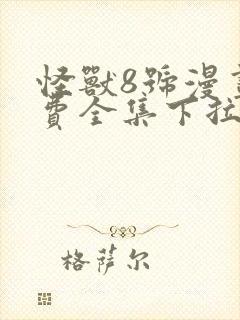 怪獸8號漫
費全集下拉
格萨尔